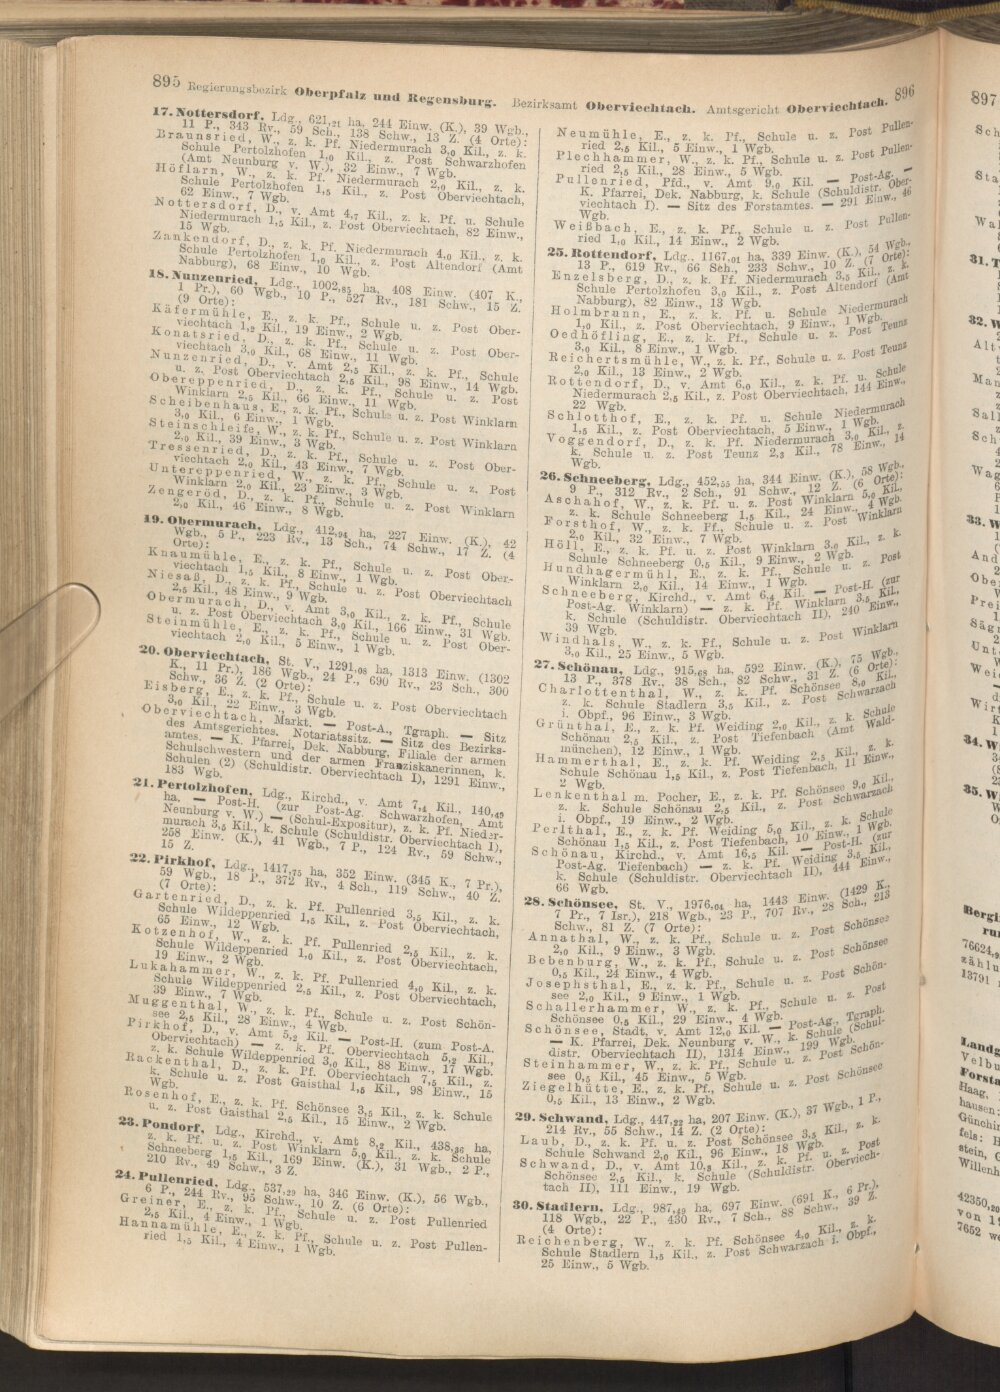 895 Regierungsbezirk Oberpfalz und Regensburg. Bezirksamt Oberviechtach. Amtsgericht Oberviechtach. 896
17. Nottersdorf, Ldg., 621,21 ha, 244 Einw. (K.), 39 Wgb.,
11 P., 343 Rv., 59 Sch., 138 Schw., 13 Z. (4 Orte):
Braunsried, W., z. k. Pf. Niedermurach 3,0 Kil., z. k.
Schule Pertolzhofen 1,0 Kil., z. Post Schwarzhofen
(Amt Neunburg v. W.), 32 Einw., 7 Wgb.
Höflarn, W., z. k. Pf. Niedermurach 2,0 Kil., z. k.
Schule Pertolzhofen 1,5 Kil., z. Post Oberviechtach,
62 Einw., 7 Wgb.
Nottersdorf, D., v. Amt 4,7 Kil., z. k. Pf. u. Schule
Niedermurach 1,5 Kil., z. Post Oberviechtach, 82 Einw.,
15 Wgb.
Zankendorf, D., z. k. Pf. Niedermurach 4,0 Kil., z. k.
Schule Pertolzhofen 1,0 Kil., z. Post Altendorf (Amt
Nabburg), 68 Einw., 10 Wgb.
18. Nunzenried, Ldg., 1002,85 ha, 408 Einw. (407 K.,
1 Pr.), 60 Wgb., 10 P., 527 Rv., 181 Schw., 15 Z.
(9 Orte):
Käfermühle, E., z. k. Pf., Schule u. z. Post Ober-
viechtach 1,2 Kil., 19 Einw., 2 Wgb.
Konatsried, D., z. k. Pf., Schule u. z. Post Ober-
viechtach 3,0 Kil., 68 Einw., 11 Wgb.
Nunzenried, D., v. Amt 2,5 Kil., z. k. Pf., Schule
u. z. Post Oberviechtach 2,5 Kil., 98 Einw., 14 Wgb.
Obereppenried, D., z. k. Pf., Schule u. z. Post
Winklarn 2,5 Kil., 66 Einw., 11 Wgb.
Scheibenhaus, E., z. k. Pf., Schule u. z. Post Winklarn
3,0 Kil., 6 Einw., 1 Wgb.
Steinschleife, W., z. k. Pf., Schule u. z. Post Winklarn
2,0 Kil., 39 Einw., 3 Wgb.
Tressenried, D., z. k. Pf., Schule u. z. Post Ober-
viechtach 2,0 Kil., 43 Einw., 7 Wgb.
Untereppenried, W., z. k. Pf., Schule u. z. Post
Winklarn 2,0 Kil., 23 Einw., 3 Wgb.
Zengeröd, D., z. k. Pf., Schule u. z. Post Winklarn
2,0 Kil., 46 Einw., 8 Wgb.
19. Obermurach, Ldg., 412,94 ha, 227 Einw. (K.), 42
Wgb., 5 P., 223 Rv., 13 Sch., 74 Schw., 17 Z. (4
Orte):
Knaumühle, E., z. k. Pf., Schule u. z. Post Ober-
viechtach 1,5 Kil., 8 Einw., 1 Wgb.
Niesaß, D., z. k. Pf., Schule u. z. Post Oberviechtach
2,5 Kil., 48 Einw., 9 Wgb.
Obermurach, D., v. Amt 3,0 Kil., z. k. Pf., Schule
u. z. Post Oberviechtach 3,0 Kil., 166 Einw., 31 Wgb.
Steinmühle, E., z. k. Pf., Schule u. z. Post Ober-
viechtach 2,0 Kil., 5 Einw., 1 Wgb.
20. Oberviechtach, St. V., 1291,08 ha, 1313 Einw. (1302
K., 11 Pr.), 186 Wgb., 24 P., 690 Rv., 23 Sch., 300
Schw., 36 Z. (2 Orte):
Eisberg, E., z. k. Pf., Schule u. z. Post Oberviechtach
3,0 Kil., 22 Einw., 3 Wgb.
Oberviechtach, Markt. — Post-A., Tgraph. — Sitz
des Amtsgerichtes. Notariatssitz. — Sitz des Bezirks-
amtes. — K. Pfarrei, Dek. Nabburg, Filiale der armen
Schulschwestern und der armen Franziskanerinnen, k.
Schulen (2) (Schuldistr. Oberviechtach I), 1291 Einw.,
183 Wgb.
21. Pertolzhofen, Ldg., Kirchd., v. Amt 7,4 Kil., 140,49
ha. — Post-H. (zur Post-Ag. Schwarzhofen, Amt
Neunburg v. W.) — (Schul-Expositur), z. k. Pf. Nieder-
murach 3,5 Kil., k. Schule (Schuldistr. Oberviechtach I),
258 Einw. (K.), 41 Wgb., 7 P., 124 Rv., 59 Schw.,
15 Z.
22. Pirkhof, Ldg., 1417,75 ha, 352 Einw. (345 K., 7 Pr.),
59 Wgb., 18 P., 372 Rv., 4 Sch., 119 Schw., 40 Z.
(7 Orte):
Gartenried, D., z. k. Pf. Pullenried 3,5 Kil., z. k.
Schule Wildeppenried 1,5 Kil., z. Post Oberviechtach,
65 Einw., 12 Wgb.
Kotzenhof, W., z. k. Pf. Pullenried 2,5 Kil., z. k.
Schule Wildeppenried 1,0 Kil., z. Post Oberviechtach,
19 Einw., 2 Wgb.
Lukahammer, W., z. k. Pf. Pullenried 4,0 Kil., z. k.
Schule Wildeppenried 2,5 Kil., z. Post Oberviechtach,
39 Einw., 7 Wgb.
Muggenthal, W., z. k. Pf., Schule u. z. Post Schön-
see 2,5 Kil., 28 Einw., 4 Wgb.
Pirkhof, D., v. Amt 5,2 Kil. — Post-H. (zum Post-A.
Oberviechtach) — z. k. Pf. Oberviechtach 5,2 Kil.,
z. k. Schule Wildeppenried 3,0 Kil., 88 Einw., 17 Wgb.
Rackenthal, D., z. k. Pf. Oberviechtach 7,5 Kil., z.
k. Schule u. z. Post Gaisthal 1,5 Kil., 98 Einw., 15
Wgb.
Rosenhof, E., z. k. Pf. Schönsee 3,5 Kil., z. k. Schule
u. z. Post Gaisthal 2,5 Kil., 15 Einw., 2 Wgb.
23. Pondorf, Ldg., Kirchd., v. Amt 8,2 Kil., 438,36 ha,
z. k. Pf. u. z. Post Winklarn 5,0 Kil., z. k. Schule
Schneeberg 1,5 Kil., 169 Einw. (K.), 31 Wgb., 2 P.,
210 Rv., 49 Schw., 3 Z.
24. Pullenried, Ldg., 537,29 ha, 346 Einw. (K.), 56 Wgb.,
6 P., 244 Rv., 95 Schw., 10 Z. (6 Orte):
Greiner, E., z. k. Pf., Schule u. z. Post Pullenried
2,5 Kil., 4 Einw., 1 Wgb.
Hannamühle, E., z. k. Pf., Schule u. z. Post Pullen-
ried 1,5 Kil., 4 Einw., 1 Wgb.
Neumühle, E., z. k. Pf., Schule u. z. Post Pullen-
ried 2,5 Kil., 5 Einw., 1 Wgb.
Plechhammer, W., z. k. Pf., Schule u. z. Post Pullen-
ried 2,5 Kil., 28 Einw., 5 Wgb.
Pullenried, Pfd., v. Amt 9,0 Kil. — Post-Ag. —
K. Pfarrei, Dek. Nabburg, k. Schule (Schuldistr. Ober-
viechtach I). — Sitz des Forstamtes. — 291 Einw., 46
Wgb.
Weißbach, E., z. k. Pf., Schule u. z. Post Pullen-
ried 1,0 Kil., 14 Einw., 2 Wgb.
25. Rottendorf, Ldg., 1167,01 ha, 339 Einw. (K.), 54 Wgb.,
13 P., 619 Rv., 66 Sch., 233 Schw., 10 Z. (7 Orte):
Enzelsberg, D., z. k. Pf. Niedermurach 3,5 Kil., z. k.
Schule Pertolzhofen 3,0 Kil., z. Post Altendorf (Amt
Nabburg), 82 Einw., 13 Wgb.
Holmbrunn, E., z. k. Pf. u. Schule Niedermurach
1,0 Kil., z. Post Oberviechtach, 9 Einw., 1 Wgb.
Oedhöfling, E., z. k. Pf., Schule u. z. Post Teunz
3,0 Kil., 8 Einw., 1 Wgb.
Reichertsmühle, W., z. k. Pf., Schule u. z. Post Teunz
2,0 Kil., 13 Einw., 2 Wgb.
Rottendorf, D., v. Amt 6,0 Kil., z. k. Pf. u. Schule
Niedermurach 2,5 Kil., z. Post Oberviechtach, 144 Einw.,
22 Wgb.
Schlotthof, E., z. k. Pf. u. Schule Niedermurach
1,5 Kil., z. Post Oberviechtach, 5 Einw., 1 Wgb.
Voggendorf, D., z. k. Pf. Niedermurach 3,0 Kil., z.
k. Schule u. z. Post Teunz 2,3 Kil., 78 Einw., 14
Wgb.
26. Schneeberg, Ldg., 452,55 ha, 344 Einw. (K.), 58 Wgb.,
9 P., 312 Rv., 2 Sch., 91 Schw., 12 Z. (6 Orte):
Aschahof, W., z. k. Pf. u. z. Post Winklarn 5,0 Kil.,
z. k. Schule Schneeberg 1,5 Kil., 24 Einw., 4 Wgb.
Forsthof, W., z. k. Pf., Schule u. z. Post Winklarn
2,0 Kil., 32 Einw., 7 Wgb.
Höll, E., z. k. Pf. u. z. Post Winklarn 3,0 Kil., z. k.
Schule Schneeberg 0,5 Kil., 9 Einw., 2 Wgb.
Hundhagermühl, E., z. k. Pf., Schule u. z. Post
Winklarn 2,0 Kil., 14 Einw., 1 Wgb.
Schneeberg, Kirchd., v. Amt 6,4 Kil. — Post-H. (zur
Post-Ag. Winklarn) — z. k. Pf. Winklarn 3,5 Kil.,
k. Schule (Schuldistr. Oberviechtach II), 240 Einw.,
39 Wgb.
Windhals, W., z. k. Pf., Schule u. z. Post Winklarn
3,0 Kil., 25 Einw., 5 Wgb.
27. Schönau, Ldg., 915,68 ha, 592 Einw. (K.), 75 Wgb.,
13 P., 378 Rv., 38 Sch., 82 Schw., 31 Z. (6 Orte):
Charlottenthal, W., z. k. Pf. Schönsee 8,0 Kil.,
z. k. Schule Stadlern 3,5 Kil., z. Post Schwarzach
i. Obpf., 96 Einw., 3 Wgb.
Grünthal, E., z. k. Pf. Weiding 2,0 Kil., z. k. Schule
Schönau 2,5 Kil., z. Post Tiefenbach (Amt Wald-
münchen), 12 Einw., 1 Wgb.
Hammerthal, E., z. k. Pf. Weiding 2,5 Kil., z. k.
Schule Schönau 1,5 Kil., z. Post Tiefenbach, 11 Einw.,
2 Wgb.
Lenkenthal m. Pocher, E., z. k. Pf. Schönsee 9,0 Kil.,
z. k. Schule Schönau 2,5 Kil., z. Post Schwarzach
i. Obpf., 19 Einw., 2 Wgb.
Perlthal, E., z. k. Pf. Weiding 5,0 Kil., z. k. Schule
Schönau 1,5 Kil., z. Post Tiefenbach, 10 Einw., 1 Wgb.
Schönau, Kirchd., v. Amt 16,5 Kil. — Post-H. (zur
Post-Ag. Tiefenbach) — z. k. Pf. Weiding 3,5 Kil.,
k. Schule (Schuldistr. Oberviechtach II), 444 Einw.,
66 Wgb.
28. Schönsee, St. V., 1976,04 ha, 1443 Einw. (1429 K.,
7 Pr., 7 Isr.), 218 Wgb., 23 P., 707 Rv., 28 Sch., 213
Schw., 81 Z. (7 Orte):
Annathal, W., z. k. Pf., Schule u. z. Post Schönsee
2,0 Kil., 9 Einw., 3 Wgb.
Bebenburg, W., z. k. Pf., Schule u. z. Post Schönsee
0,5 Kil., 24 Einw., 4 Wgb.
Josephsthal, E., z. k. Pf., Schule u. z. Post Schön-
see 2,0 Kil., 9 Einw., 1 Wgb.
Schallerhammer, W., z. k. Pf., Schule u. z. Post
Schönsee 0,5 Kil., 29 Einw., 4 Wgb.
Schönsee, Stadt, v. Amt 12,0 Kil. — Post-Ag., Tgraph.
— K. Pfarrei, Dek. Neunburg v. W., k. Schule (Schul-
distr. Oberviechtach II), 1314 Einw., 199 Wgb.
Steinhammer, W., z. k. Pf., Schule u. z. Post Schön-
see 0,5 Kil., 45 Einw., 5 Wgb.
Ziegelhütte, E., z. k. Pf., Schule u. z. Post Schönsee
0,5 Kil., 13 Einw., 2 Wgb.
29. Schwand, Ldg., 447,22 ha, 207 Einw. (K.), 37 Wgb., 1 P.,
214 Rv., 55 Sch., 14 Z. (2 Orte):
Laub, D., z. k. Pf. u. z. Post Schönsee 3,5 Kil., z. k.
Schule Schwand 2,0 Kil., 96 Einw., 18 Wgb.
Schwand, D., v. Amt 10,8 Kil., z. k. Pf. u. z. Post
Schönsee 2,5 Kil., k. Schule (Schuldistr. Oberviech-
tach II), 111 Einw., 19 Wgb.
30. Stadlern, Ldg., 987,49 ha, 697 Einw. (691 K., 6 Pr.),
118 Wgb., 22 P., 430 Rv., 7 Sch., 88 Schw., 39 Z.
(4 Orte):
Reichenberg, W., z. k. Pf. Schönsee 4,0 Kil., z. k.
Schule Stadlern 1,5 Kil., z. Post Schwarzach i. Obpf.,
25 Einw., 5 Wgb.
897
31. T
32. W
33. W
34. W
35. W
76624,
13791
Velbu
Haag,
hausen:
fels: H
stein, G
Willenh
42350,20
von 1
7652 w